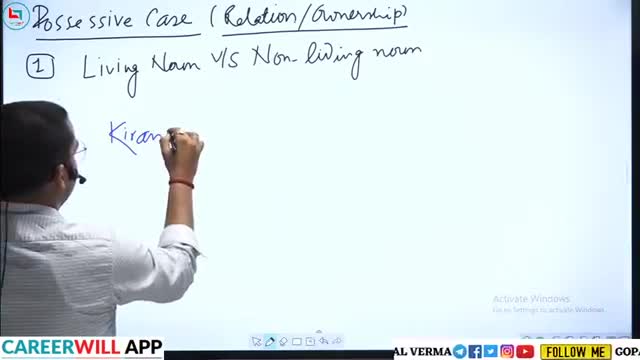 Possessive Case (Relation/Ownership)
1 Living Noun v/s Non-living noun
Kiran
Activate Windows
Go to Settings to activate Windows.
CAREERWILL APP
AL VERMA
FOLLOW ME
GOP